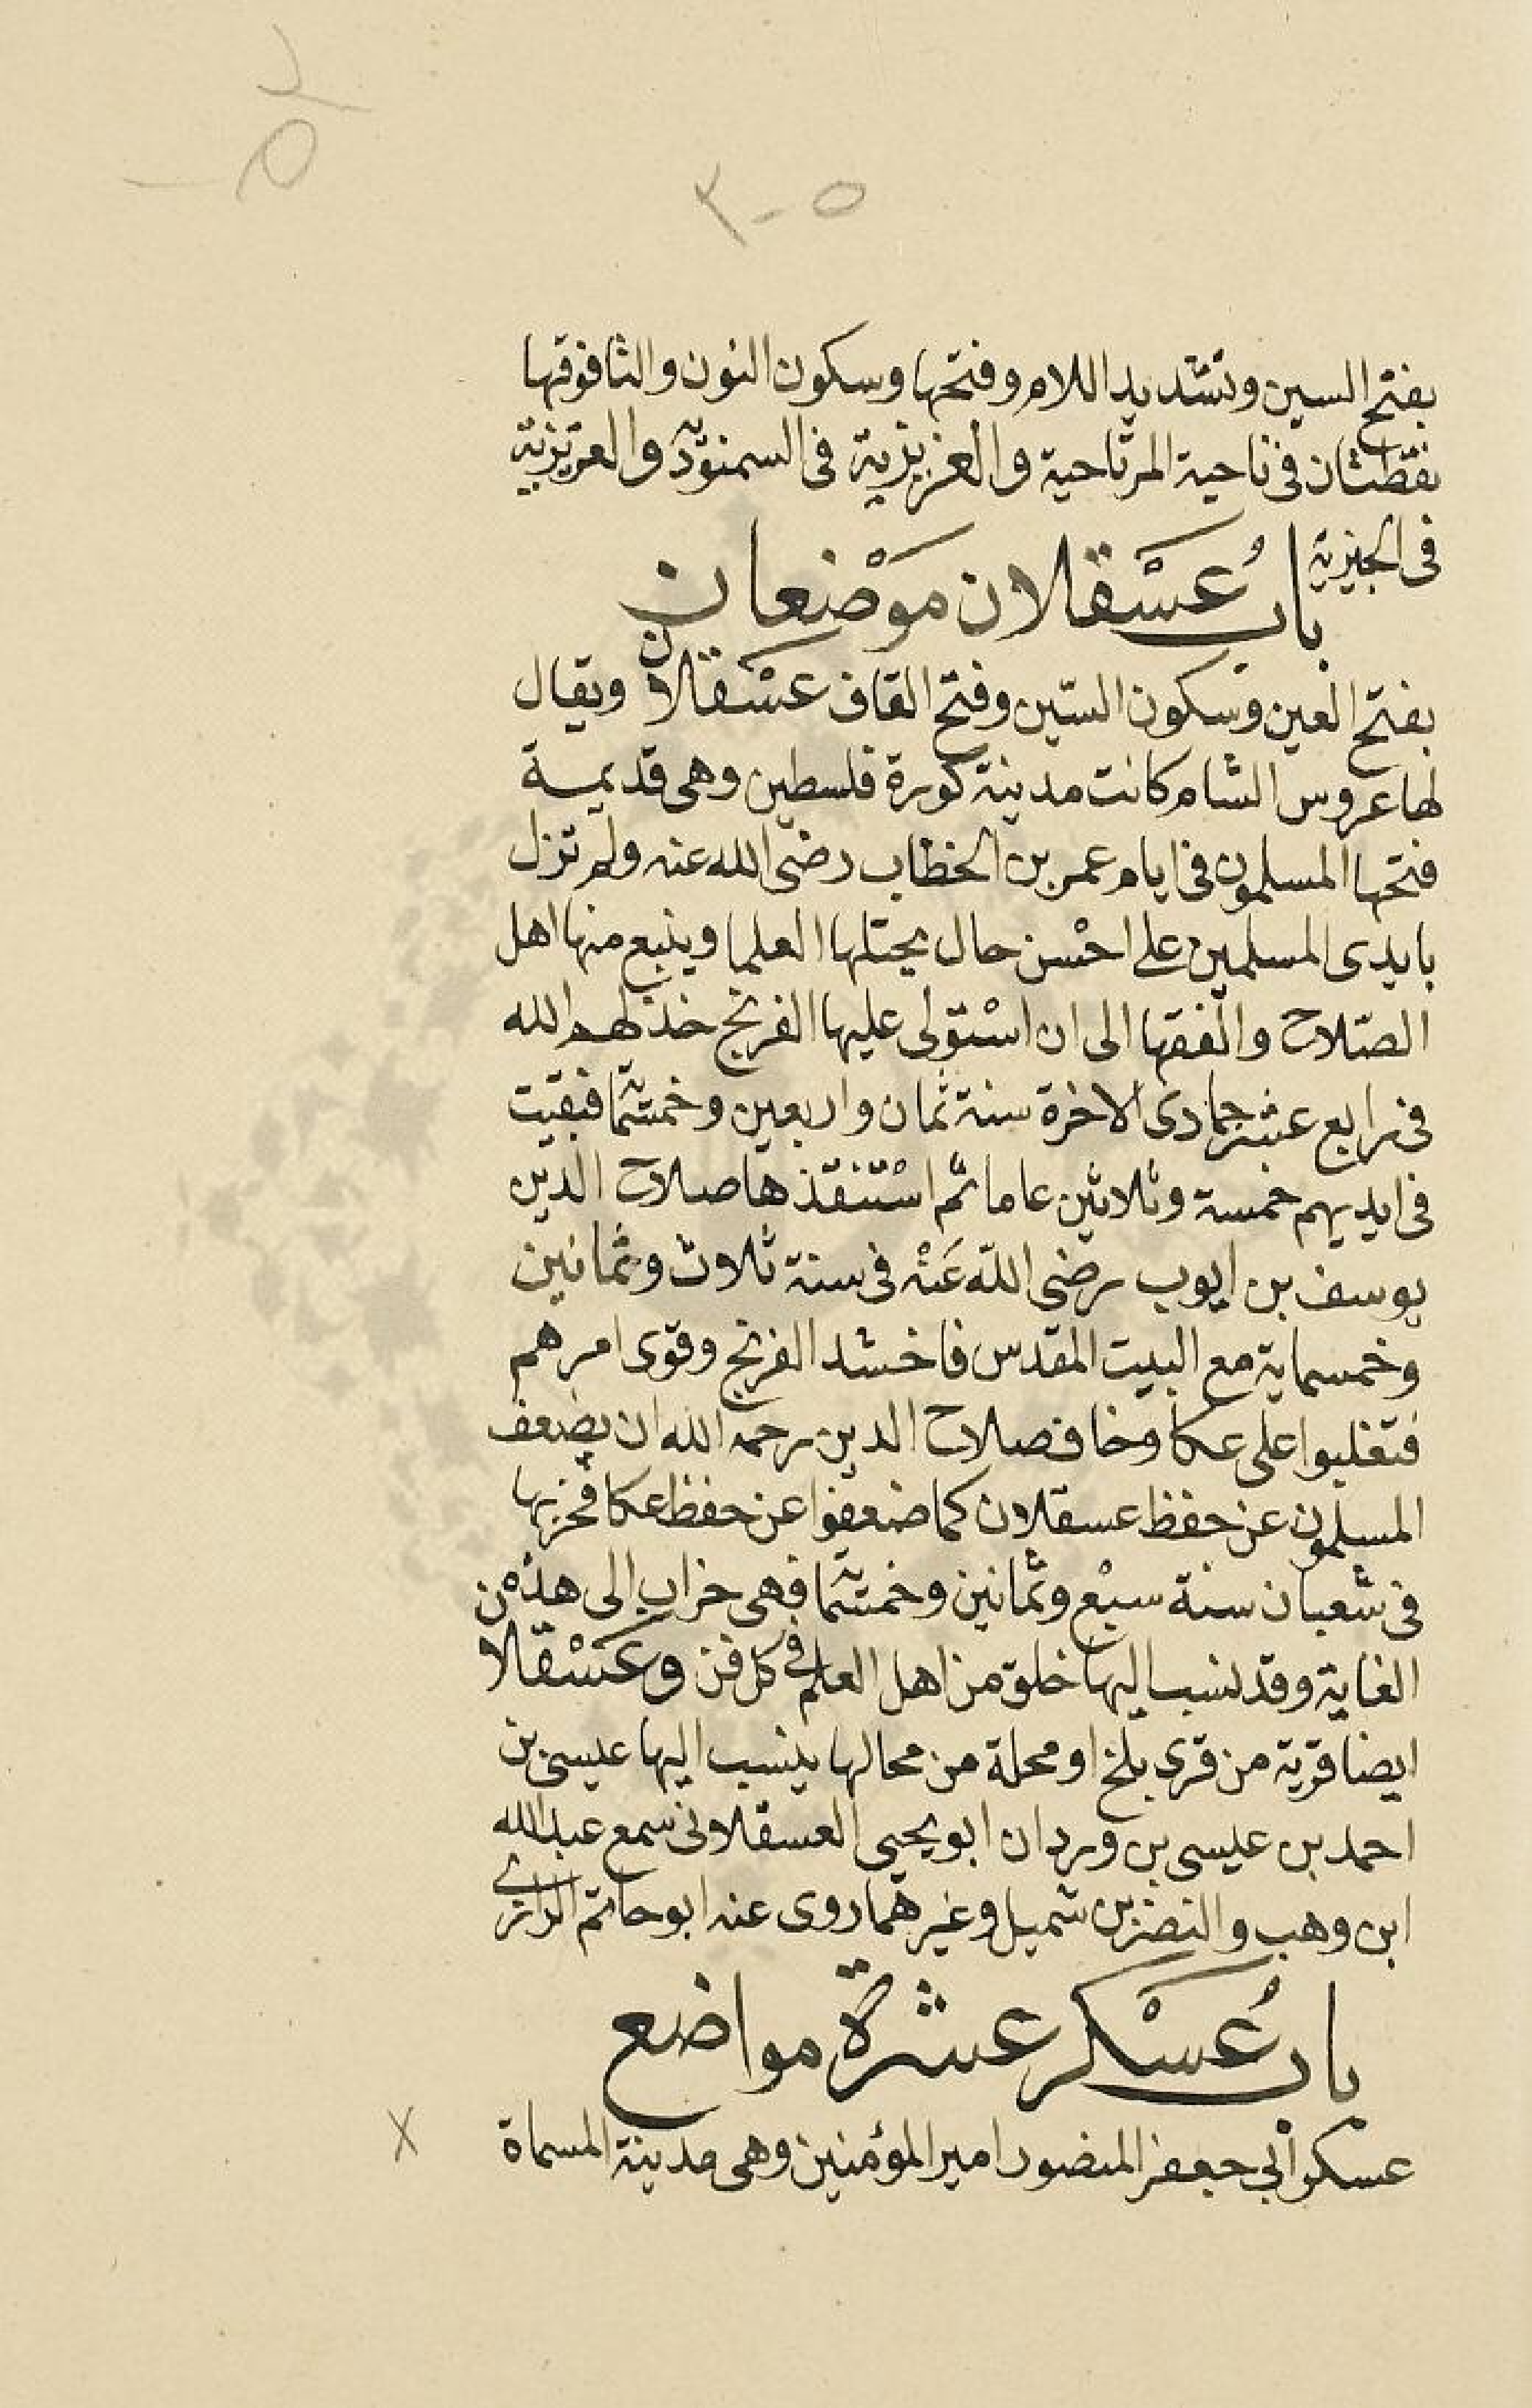 ٣٠٥
بفتح السين وتشديد اللام وفتحها وسكون النون والتا فوقها
نقطتان فى ناحية المرتاحية والعزيزية فى السمنودية والعزيزية
فى الجيزية
باب عسْقلان موْضعان
بفتح العين وسكون السّين وفتح القاف عسْقلان ويقال
لها عروس الشام كانت مدينة كورة فلسطين وهى قديمة
فتحها المسلمون فى ايام عمر بن الخطاب رضى الله عنه ولم تزل
بايدى المسلمين على احْسن حال يحتلها العلما وينبع منها اهل
الصّلاح والفقها الى ان اسْتولى عليها الفرنج خذلهم الله
فى رابع عشر جمادى الاخرة سنة ثمان واربعين وخمسما فبقيت
فى ايديهم خمسة وثلاثين عاما ثم اسْتنقذها صلاح الدين
يوسف بن ايوب رضى الله عَنْه فى سنة ثلاث وثمانين
وخمسماية مع البيت المقدس فاخشد الفرنج وقوى امرهم
فتغلبوا على عكا وخاف صلاح الدين رحمه الله ان يضعف
المسلمون عن حفظ عسقلان كما ضعفوا عن حفظ عكا فخربها
فى شعبان سنة سبْع وثمانين وخمسما فهى خراب الى هذه من
الغاية وقد نسب اليها خلق من اهل العلم فى كل فن وعَسْقلا
ايضا قرية من قرى بلخ او محلة من محالها ينسب اليها عيسى بن
احمد بن عيسى بن وردان ابو يحيى العسقلانى سمع عبد الله
ابن وهب والنضر بن شميل وغيرهما روى عنه ابو حاتم الرازى
باب عُسْكر عشرة مواضع
عسكر أبي جعفر المنصور امير المؤمنين وهى مدينة المسماة